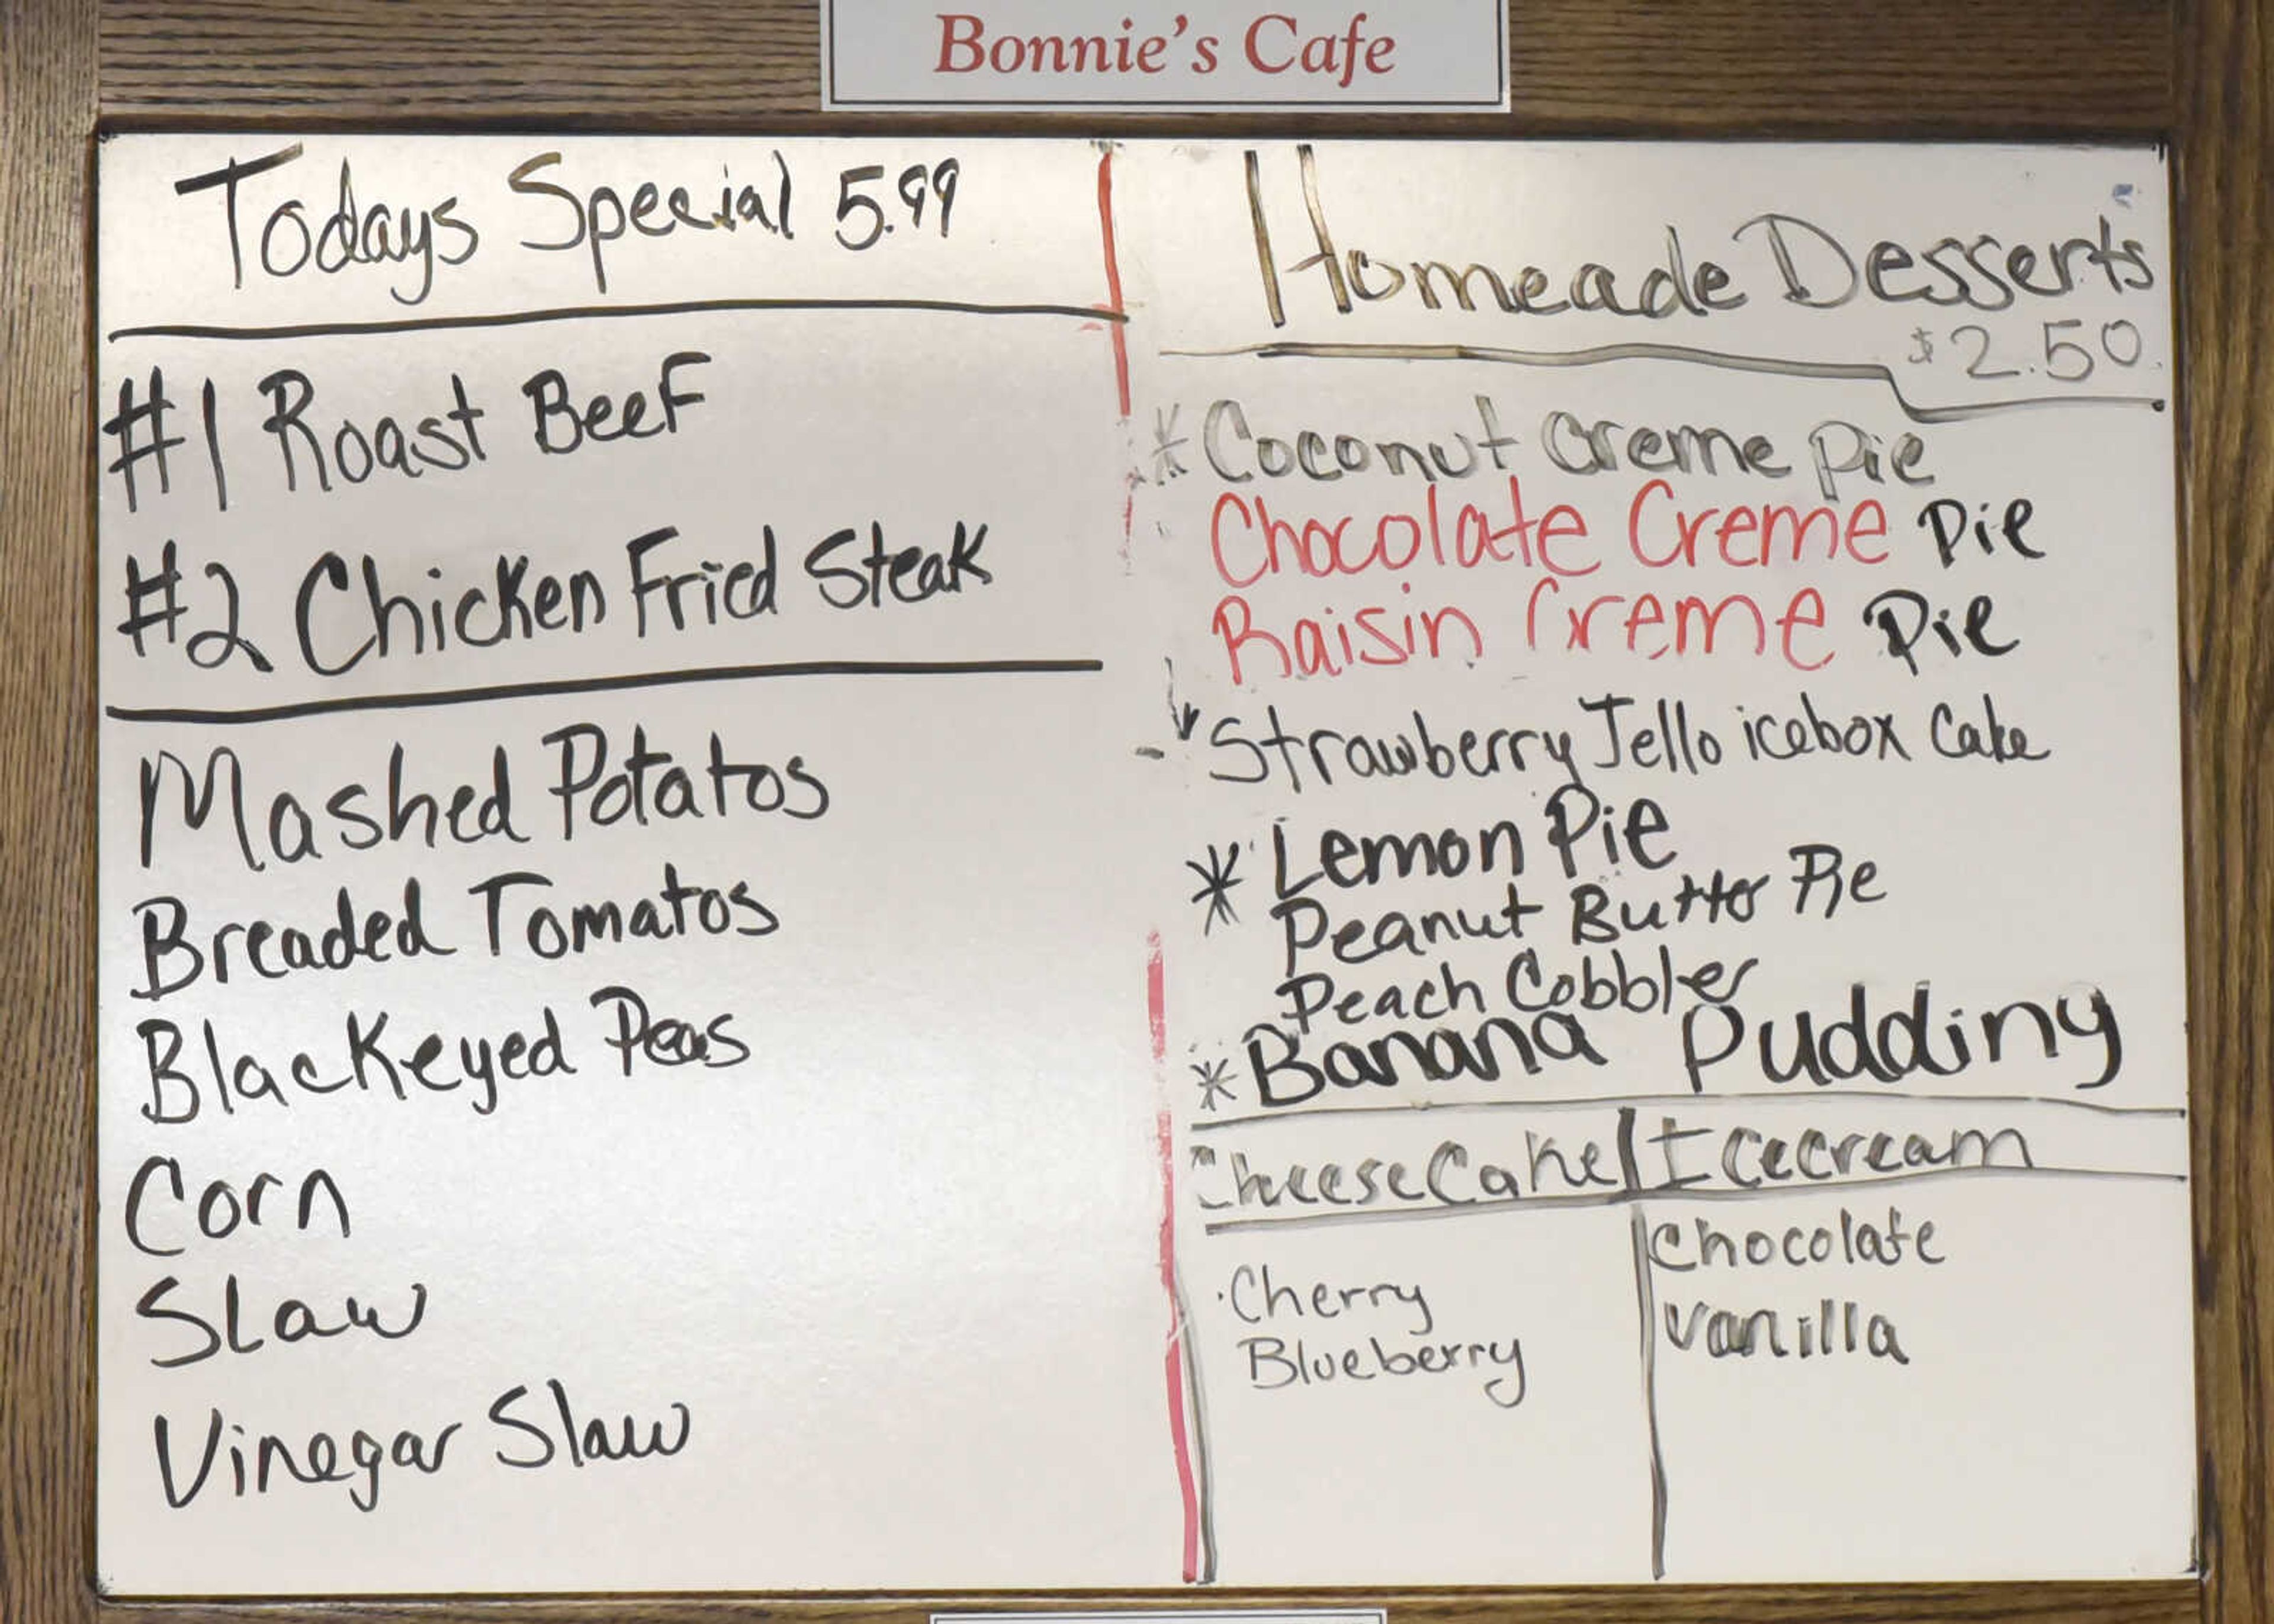 Bonnie's Cafe
Todays Special 5.99
#1 Roast Beef
#2 Chicken Fried Steak
Mashed Potatos
Breaded Tomatos
Blackeyed Peas
Corn
Slaw
Vinegar Slaw
Homeade Desserts
$2.50
* Coconut Creme Pie
Chocolate Creme Pie
Raisin Creme Pie
Strawberry Jello icebox Cake
* Lemon Pie
Peanut Butter Pie
Peach Cobbler
* Banana Pudding
CheeseCake
Cherry
Blueberry
Icecream
Chocolate
Vanilla